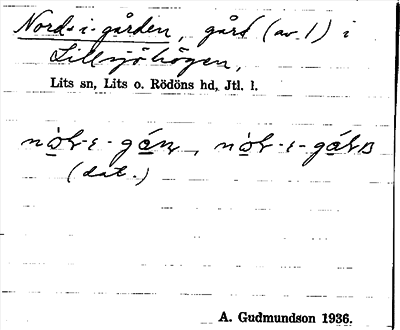 Nord-i-gården, gård (av. 1) i
Lillsjöhögen,
Lits sn, Lits o. Rödöns hd, Jtl. l.
(dat.)
A. Gudmundson 1936.